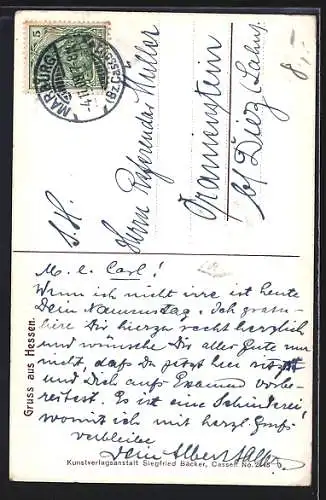 5
MARBURG
(Bz. Cassel)
S. H.
Herrn Referendar Müller
Oranienstein
b/ Diez (Lahn).
8,-
Gruss aus Hessen.
M. l. Carl!
Wenn ich nicht irre ist heute
Dein Namenstag. Ich gratu-
liere Dir hierzu recht herzlich
und wünsche Dir alles Gute nur
nicht, daß Du jetzt hier sitzst
und Dich aufs Examen vorbe-
reitest. Es ist eine Schinderei,
womit ich mit herzl. Gruß
verbleibe
Dein Albert
Kunstverlagsanstalt Siegfried Bäcker, Cassel No.